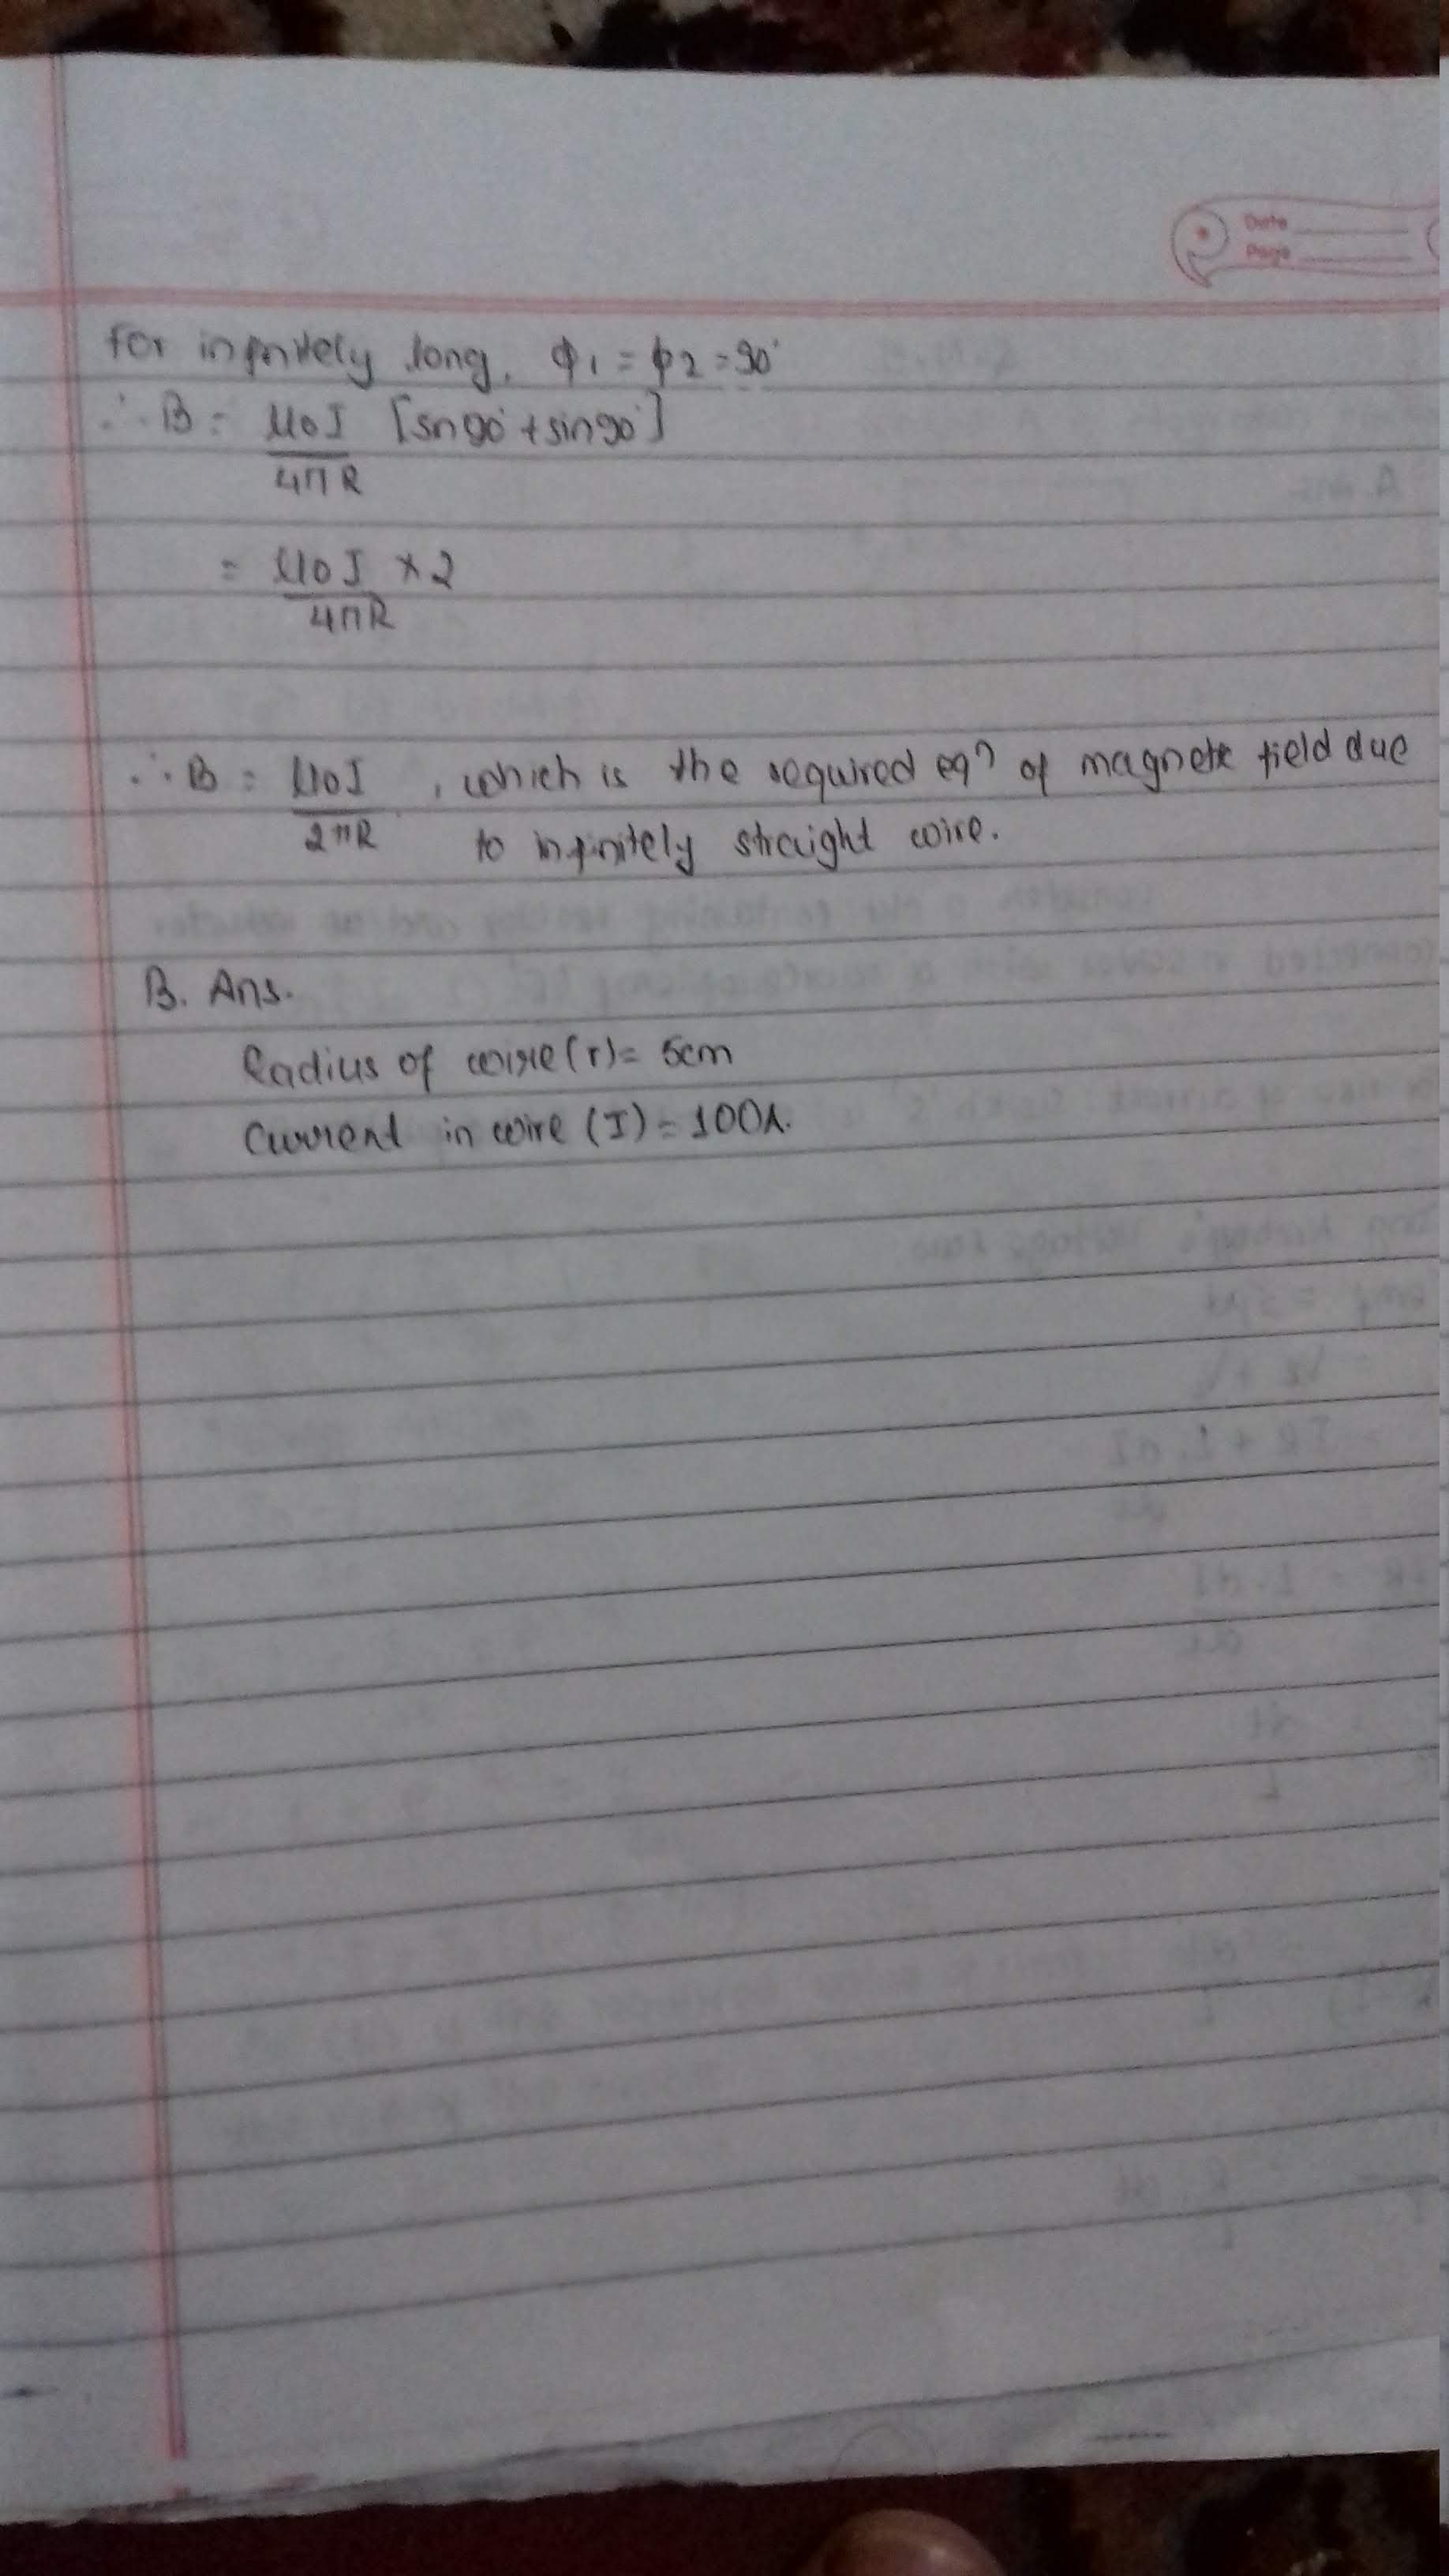 Date
Page
For infinitely long, ϕ1 = ϕ2 = 90°
∴ B = μ0I [sin90° + sin90°]
4πR
= μ0I × 2
4πR
∴ B = μ0I , which is the required eqn of magnetic field due
2πR to infinitely straight wire.
B. Ans.
Radius of wire (r) = 5cm
Current in wire (I) = 100A.